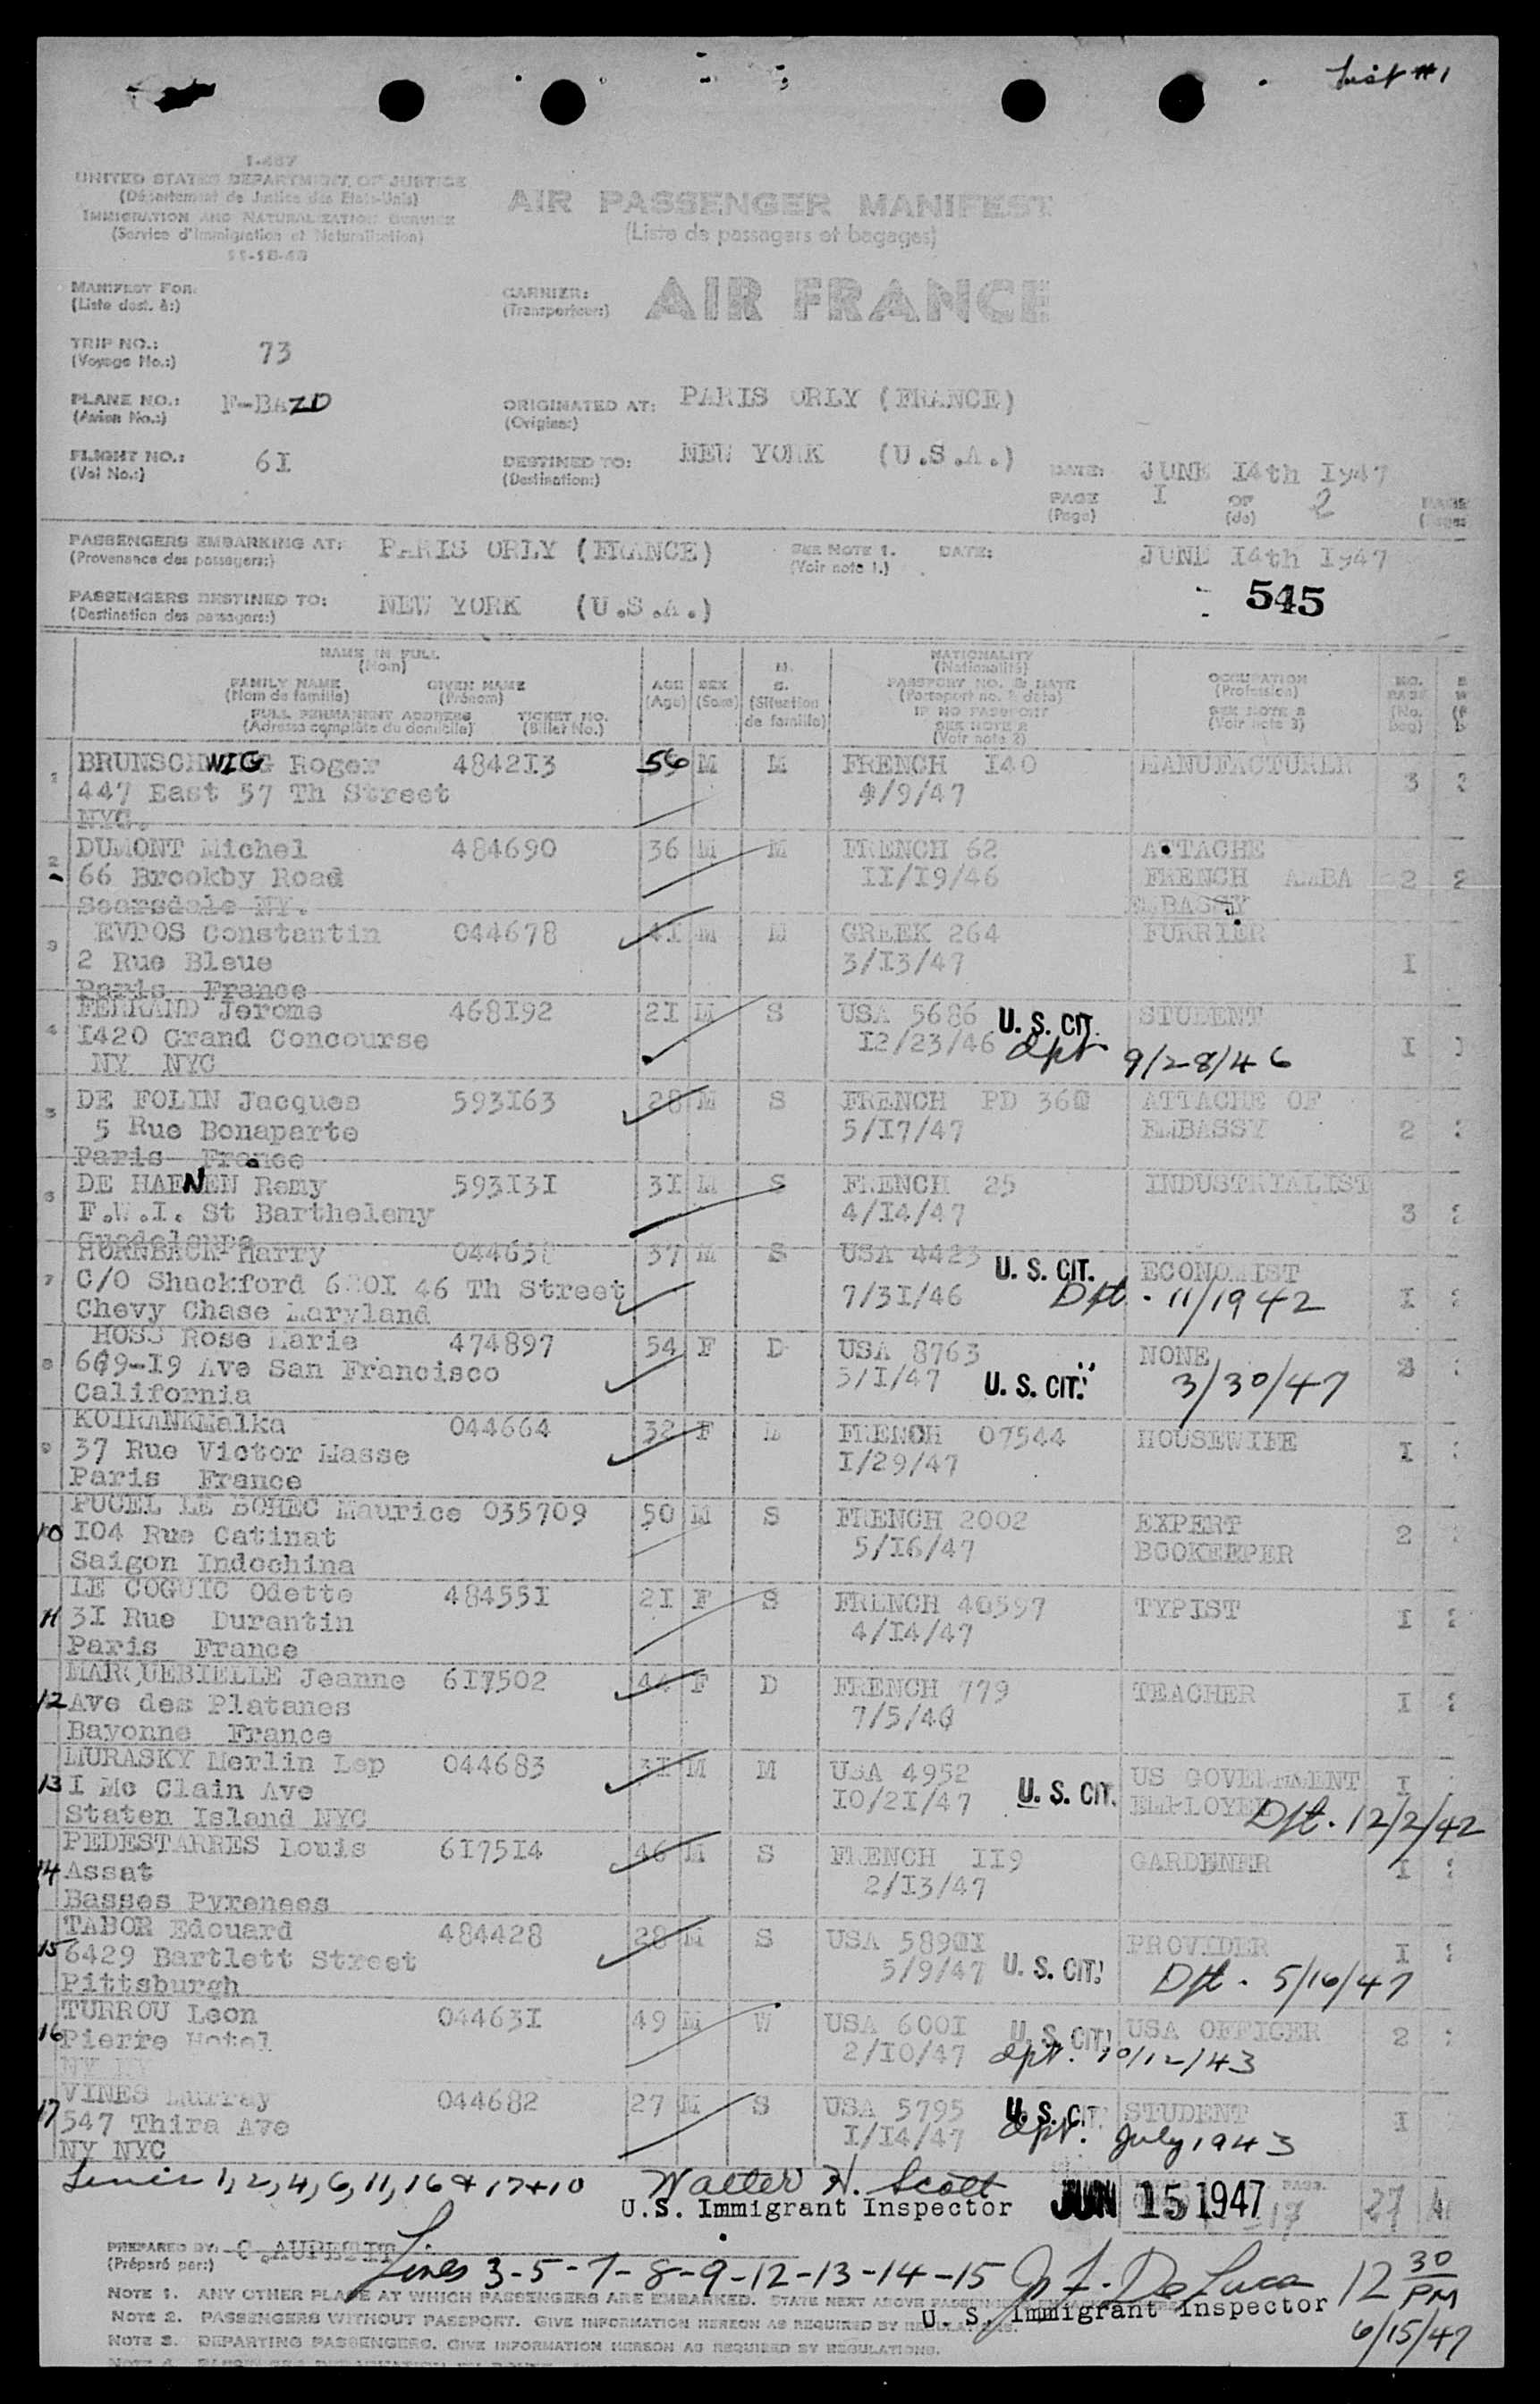 List #1
I-467
UNITED STATES DEPARTMENT OF JUSTICE
(Département de Justice des Etats-Unis)
IMMIGRATION AND NATURALIZATION SERVICE
(Service d'Immigration et Naturalisation)
11-18-48
AIR PASSENGER MANIFEST
(Liste de passagers et bagages)
MANIFEST FOR:
(Liste dest. à:)
CARRIER:
(Transporteur:)
AIR FRANCE
TRIP NO.: 73
(Voyage No.:)
PLANE NO.: F-BAZD
(Avion No.:)
ORIGINATED AT: PARIS ORLY (FRANCE)
(Origine:)
FLIGHT NO.: 6I
(Vol No.:)
DESTINED TO: NEW YORK (U.S.A.)
(Destination:)
DATE: JUNE I4th I947
PAGE I OF 2
(Page) (de)
PASSENGERS EMBARKING AT: PARIS ORLY (FRANCE) SEE NOTE 1. DATE: JUNE I4th I947
(Provenance des passagers:) (Voir note 1.)
545
PASSENGERS DESTINED TO: NEW YORK (U.S.A.)
(Destination des passagers:)
NAME IN FULL
(Nom)
FAMILY NAME GIVEN NAME
(Nom de famille) (Prénom)
FULL PERMANENT ADDRESS TICKET NO.
(Adresse complète du domicile) (Billet No.)
AGE
(Age)
SEX
(Sexe)
M.
S.
(Situation
de famille)
NATIONALITY
(Nationalité)
PASSPORT NO. & DATE
(Passeport no. & date)
IF NO PASSPORT
SEE NOTE 2
(Voir note 2)
OCCUPATION
(Profession)
SEE NOTE 3
(Voir note 3)
1 BRUNSCHWIG Roger 4842I3 56 M M FRENCH I40 MANUFACTURER 3
447 East 57 Th Street 4/9/47
NYC.
2 DUMONT Michel 484690 36 M M FRENCH 62 ATTACHE
66 Brookby Road II/I9/46 FRENCH AMBA 2 2
Scarsdale NY. EMBASSY
3 EVDOS Constantin 044678 4I M M GREEK 264 FURRIER
2 Rue Bleue 3/I3/47 I
Paris France
4 FERRAND Jerome 468I92 2I M S USA 5686 U. S. CIT. STUDENT
I420 Grand Concourse I2/23/46 dpt 9/28/46 I
NY NYC
5 DE FOLIN Jacques 593I63 28 M S FRENCH PD 360 ATTACHE OF
5 Rue Bonaparte 5/I7/47 EMBASSY 2
Paris France
6 DE HAENEN Remy 593I3I 3I M S FRENCH 25 INDUSTRIALIST
F.W.I. St Barthelemy 4/I4/47 3
Guadeloupe
7 HORNBACK Harry 044658 37 M S USA 4423 U. S. CIT. ECONOMIST
C/O Shackford 620I 46 Th Street 7/3I/46 Dpt. 11/1942 I
Chevy Chase Maryland
8 HOSS Rose Marie 474897 54 F D USA 8763 NONE
669-I9 Ave San Francisco 5/I/47 U. S. CIT. 3/30/47 3
California
9 KOIRANKMalka 044664 32 F M FRENCH 07544 HOUSEWIFE
37 Rue Victor Masse I/29/47 I
Paris France
10 PUCEL LE BOHEC Maurice 035709 50 M S FRENCH 2002 EXPERT
I04 Rue Catinat 5/I6/47 BOOKEEPER 2
Saigon Indochina
11 LE COGUIC Odette 48455I 2I F S FRENCH 40597 TYPIST
3I Rue Durantin 4/I4/47 I
Paris France
12 MARQUEBIELLE Jeanne 6I7502 44 F D FRENCH 779 TEACHER
Ave des Platanes 7/5/46 I
Bayonne France
13 MURASKY Merlin Lep 044683 3I M M USA 4952 US GOVERNMENT
I Mc Clain Ave I0/2I/47 U. S. CIT. EMPLOYEE I
Staten Island NYC Dpt. 12/2/42
14 PEDESTARRES Louis 6I75I4 46 M S FRENCH II9 GARDENER
Assat 2/I3/47 I
Basses Pyrenees
15 TABOR Edouard 484428 28 M S USA 5890I PROVIDER
6429 Bartlett Street 5/9/47 U. S. CIT. I
Pittsburgh Dpt. 5/16/47
16 TURROU Leon 04463I 49 M W USA 600I U. S. CIT. USA OFFICER
Pierre Hotel 2/I0/47 dpt. 10/12/43 2
NY NY
17 VINES Murray 044682 27 M S USA 5795 U. S. CIT. STUDENT
547 Third Ave I/I4/47 dpt. July 1943 I
NY NYC
Lines 1, 2, 4, 6, 11, 16 & 17 + 10 Walter H. Scott
U.S. Immigrant Inspector JUN 15 1947 PASS. 17 27
PREPARED BY: C.AUPETIT
(Préparé par:)
Lines 3-5-7-8-9-12-13-14-15 J. F. De Luca 12 30 PM
U. S. Immigrant Inspector
6/15/47
NOTE 1. ANY OTHER PLACE AT WHICH PASSENGERS ARE EMBARKED. STATE NEXT ABOVE
NOTE 2. PASSENGERS WITHOUT PASSPORT. GIVE INFORMATION HEREON AS REQUIRED BY REGULATIONS.
NOTE 3. DEPARTING PASSENGERS. GIVE INFORMATION HEREON AS REQUIRED BY REGULATIONS.